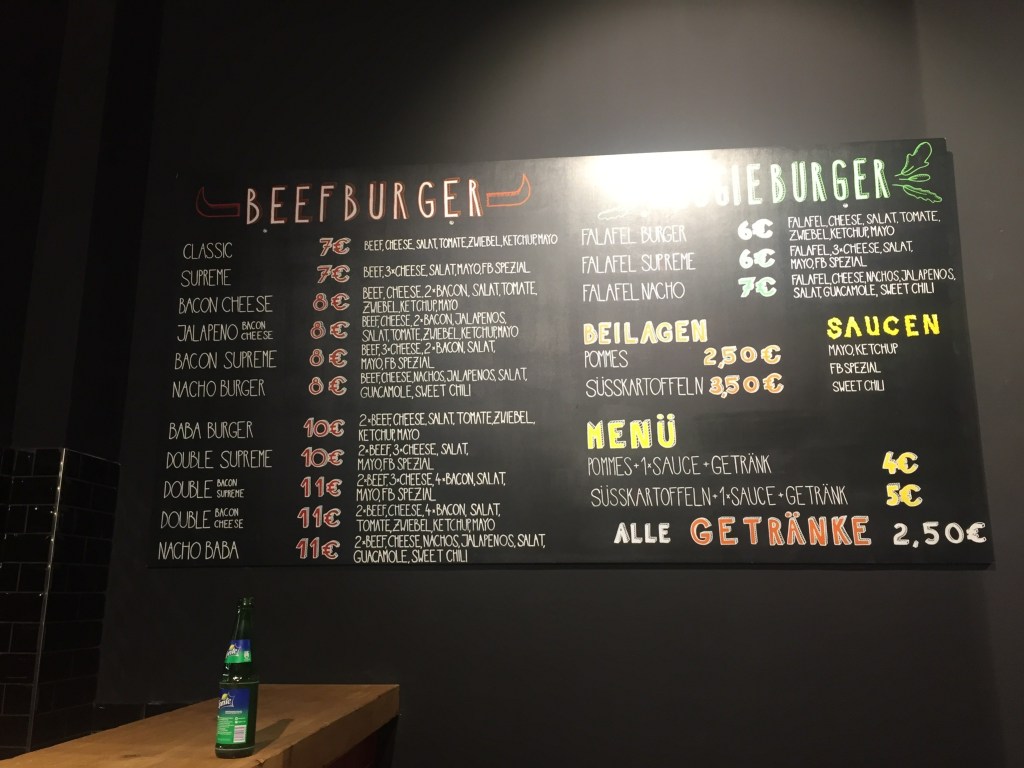 BEEFBURGER
CLASSIC 7€ BEEF, CHEESE, SALAT, TOMATE, ZWIEBEL, KETCHUP, MAYO
SUPREME 7€ BEEF, 3×CHEESE, SALAT, MAYO, FB SPEZIAL
BACON CHEESE 8€ BEEF, CHEESE, 2×BACON, SALAT, TOMATE,
ZWIEBEL, KETCHUP, MAYO
JALAPENO BACON CHEESE 8€ BEEF, CHEESE, 2×BACON, JALAPENOS,
SALAT, TOMATE, ZWIEBEL, KETCHUP, MAYO
BACON SUPREME 8€ BEEF, 3×CHEESE, 2×BACON, SALAT,
MAYO, FB SPEZIAL
NACHO BURGER 8€ BEEF, CHEESE, NACHOS, JALAPENOS, SALAT,
GUACAMOLE, SWEET CHILI
BABA BURGER 10€ 2×BEEF, CHEESE, SALAT, TOMATE, ZWIEBEL,
KETCHUP, MAYO
DOUBLE SUPREME 10€ 2×BEEF, 3×CHEESE, SALAT,
MAYO, FB SPEZIAL
DOUBLE BACON SUPREME 11€ 2×BEEF, 3×CHEESE, 4×BACON, SALAT,
MAYO, FB SPEZIAL
DOUBLE BACON CHEESE 11€ 2×BEEF, CHEESE, 4×BACON, SALAT,
TOMATE, ZWIEBEL, KETCHUP, MAYO
NACHO BABA 11€ 2×BEEF, CHEESE, NACHOS, JALAPENOS, SALAT,
GUACAMOLE, SWEET CHILI
BURGER
FALAFEL BURGER 6€ FALAFEL, CHEESE, SALAT, TOMATE,
ZWIEBEL, KETCHUP, MAYO
FALAFEL SUPREME 6€ FALAFEL, 3×CHEESE, SALAT,
MAYO, FB SPEZIAL
FALAFEL NACHO 7€ FALAFEL, CHEESE, NACHOS, JALAPENOS,
SALAT, GUACAMOLE, SWEET CHILI
BEILAGEN
POMMES 2,50€
SÜSSKARTOFFELN 3,50€
SAUCEN
MAYO, KETCHUP
FB SPEZIAL
SWEET CHILI
MENÜ
POMMES+1×SAUCE+GETRÄNK 4€
SÜSSKARTOFFELN+1×SAUCE+GETRÄNK 5€
ALLE GETRÄNKE 2,50€